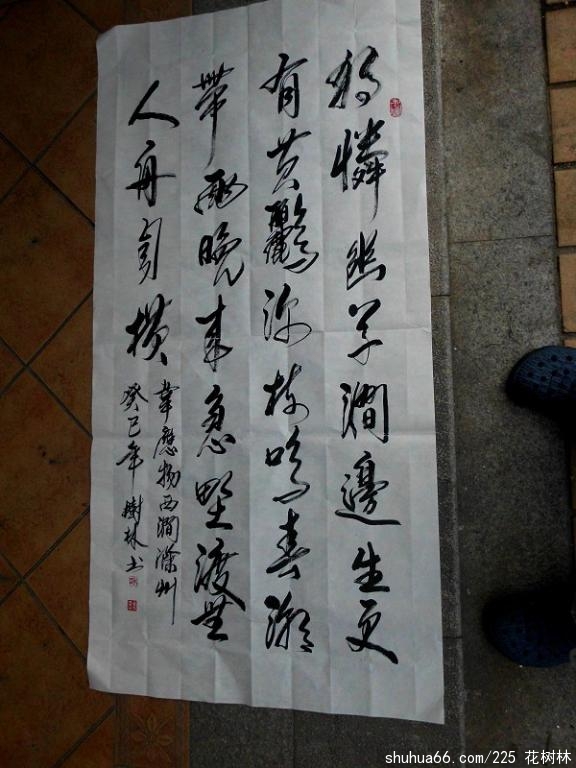 独憐幽草澗邊生更
有黄鸝深树鸣春潮
帶雨晚来急野渡無
人舟自横
韋應物西澗滁州
癸巳年樹林书
shuhua66.com/225 花树林